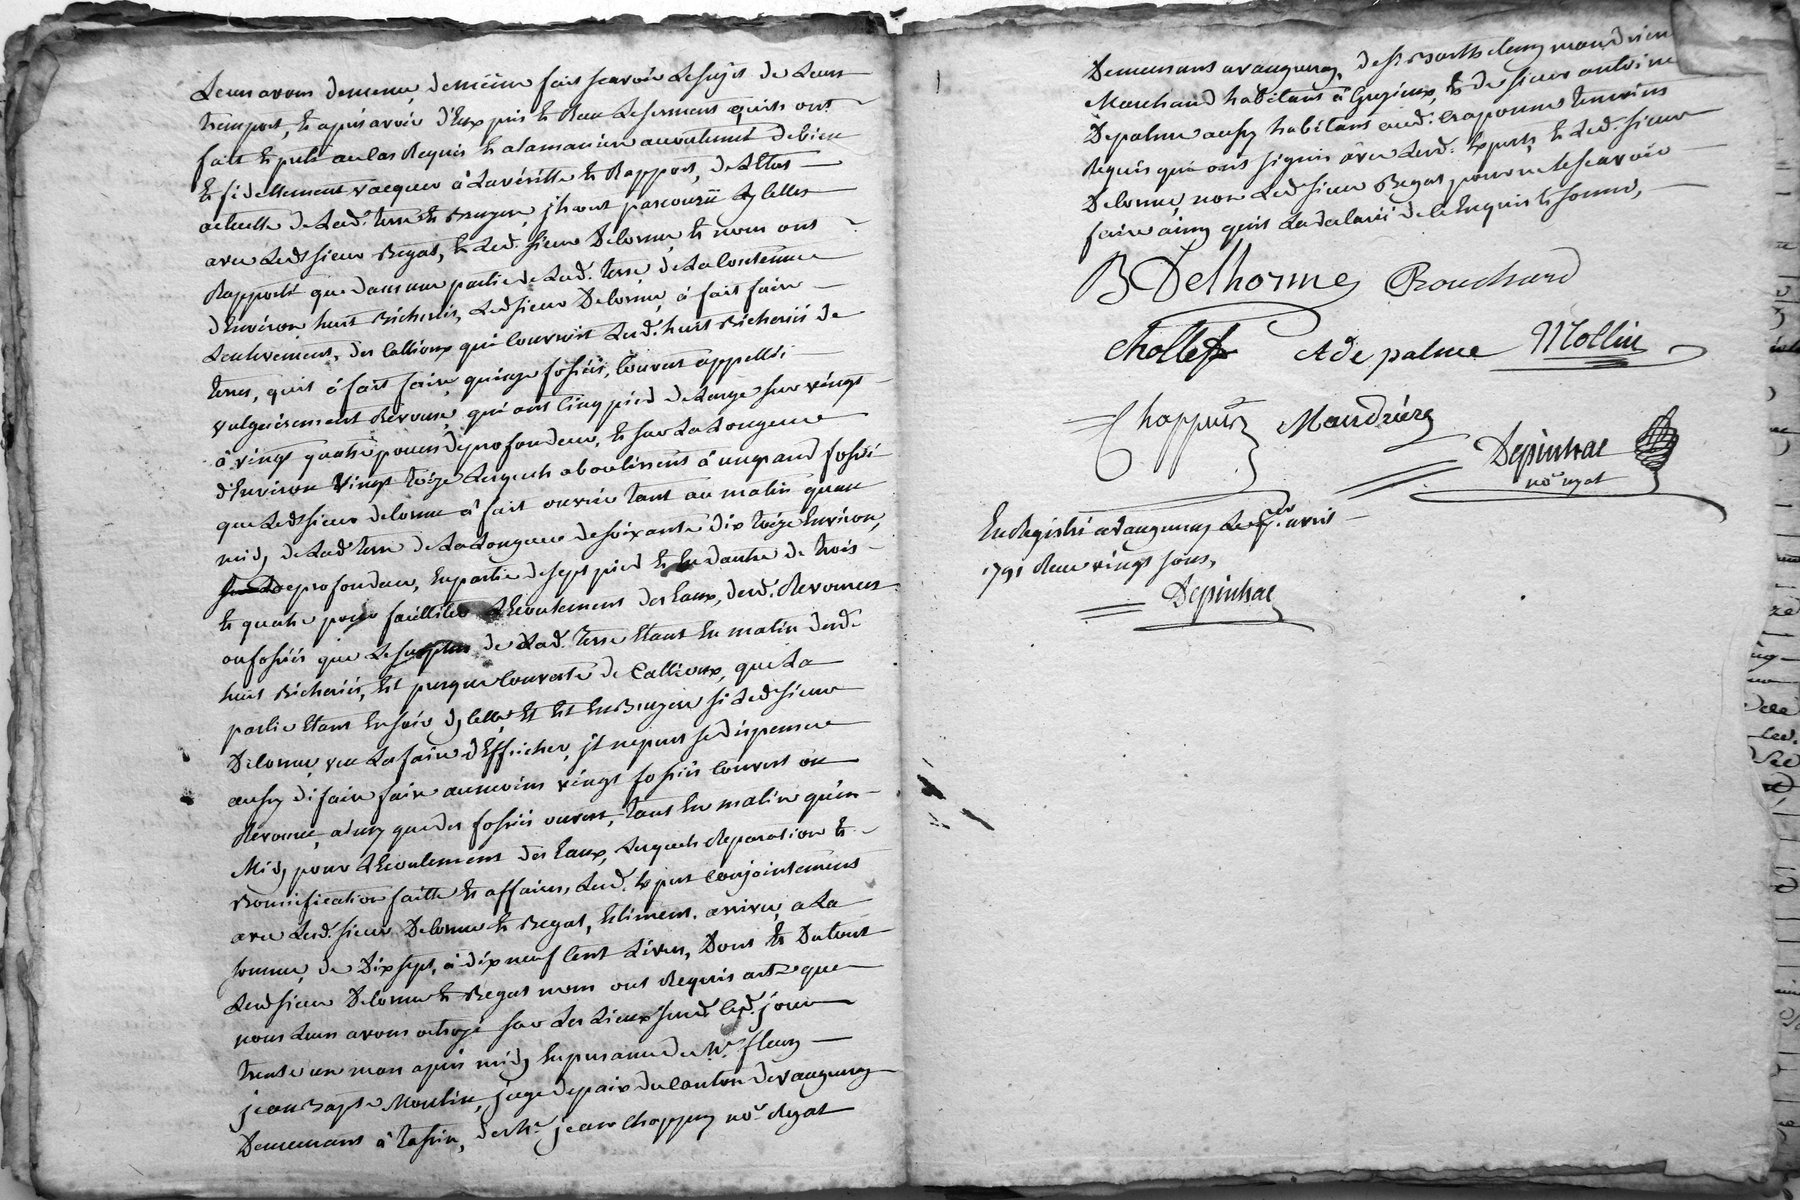 Leur avons de meme, de même fait scavoir Le sujet de Leur
transport, et apres avoir d'Eux pris et Recu Le serment quils ont
fait et pretté au cas Requis et a la maniere accoutumé de bien
et fidellement vacquer à La véritté et Rapport, de L'Etat
actuelle de Lad. terre et Bruyere, jls ont parcourü Jcelles
avec Ledt sieur Regat, et Led. sieur Delorme, et nous ont
Rapporté que dans une partie de Lad. terre de La Contenue
d'Environ huit Bicherées, Led sieur Delorme, à fait faire
L'enlevement, des Callioux qui Couvroit Lesd. huit Bicherées de
terre, quil à fait faire, quinze fossés, Couvert appellés
vulguerement Revouse, qui ont Cinq pied de Large sur vingt
à vingt quatre pouces de profondeur, et sur La Longueur
d'Environ vingt toize Lesquels aboutissent à un grand fossé
que Ledt sieur delorme à fait ouvrir tant au matin quau
midy de Lad. terre de La Longueur de soixante dix toize Environ,
de profondeur, En partie de sept pied et En d'autre de trois
et quatre pour faciliter L'Ecoulement des Eaux, desd. Revouses
ou fossés que Le surplus de Lad. terre Etant En matin desd.
huit Bicherées, Est presque Couverte de Callioux, que La
partie Etant En soir dJcelle Et Est En Bruyere si Led sieur
Delorme, veu La faire d'Effricher, jl ne peut se dispenser
aussy di faire faire aumoins vingt fossés Couvert ou
Revouse, ainsy que des fossés ouvert, tant En matin qu'en
Midy pour L'Ecoulement des Eaux, Lesquels Reparation et
Bonnification faitte et affaires, Lesd. Expert Conjointement
avec Lesd. sieur Delorme et Regat, Estiment, arriver, a La
somme, de Dix sept, à dix neuf Cent Livres, Dont et Du tout
Lesd sieur Delorme et Regat nous ont Requis acte que
nous Leur avons octroyé sur Les Lieux susd. Led. jour
trente un mars après midy En presance de Mr. fleury
jean Bapte Moulin, juge de paix du Canton de vaugneray
Demeurant à tassin, de Mr. jean Chappuy nore. Royal
Demeurant a vaugneray, de sr. Barthelemy mandrier
Marchand habitant à Grezieux, et de sieur antoine
Depalme aussy habitant aud. Craponne temoins
Requis qui ont signés avec Lesd. Experts et Led. sieur
Delorme, non Led sieur Regat pour ne le scavoir
faire ainsy quil La declaré de Ce Enquis et sommé,
B Delhorme Bouchard
Chollet A depalme Mollin
Chappuy Mandrier
Depinhac
nore. royal
Enregistré a vaugneray Le avril
1791 Recu vingt sous,
Depinhac